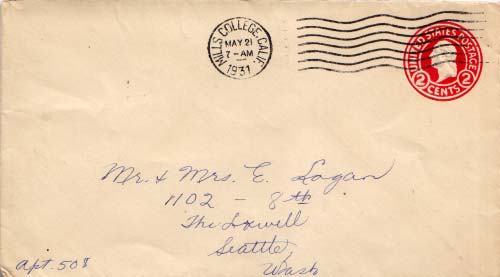 MILLS COLLEGE, CALIF.
MAY 21
7-AM
1931
UNITED STATES POSTAGE
2 CENTS 2
Mr. & Mrs. E. Logan
1102 - 8th
The Loxwell
Seattle,
Wash
Apt. 508